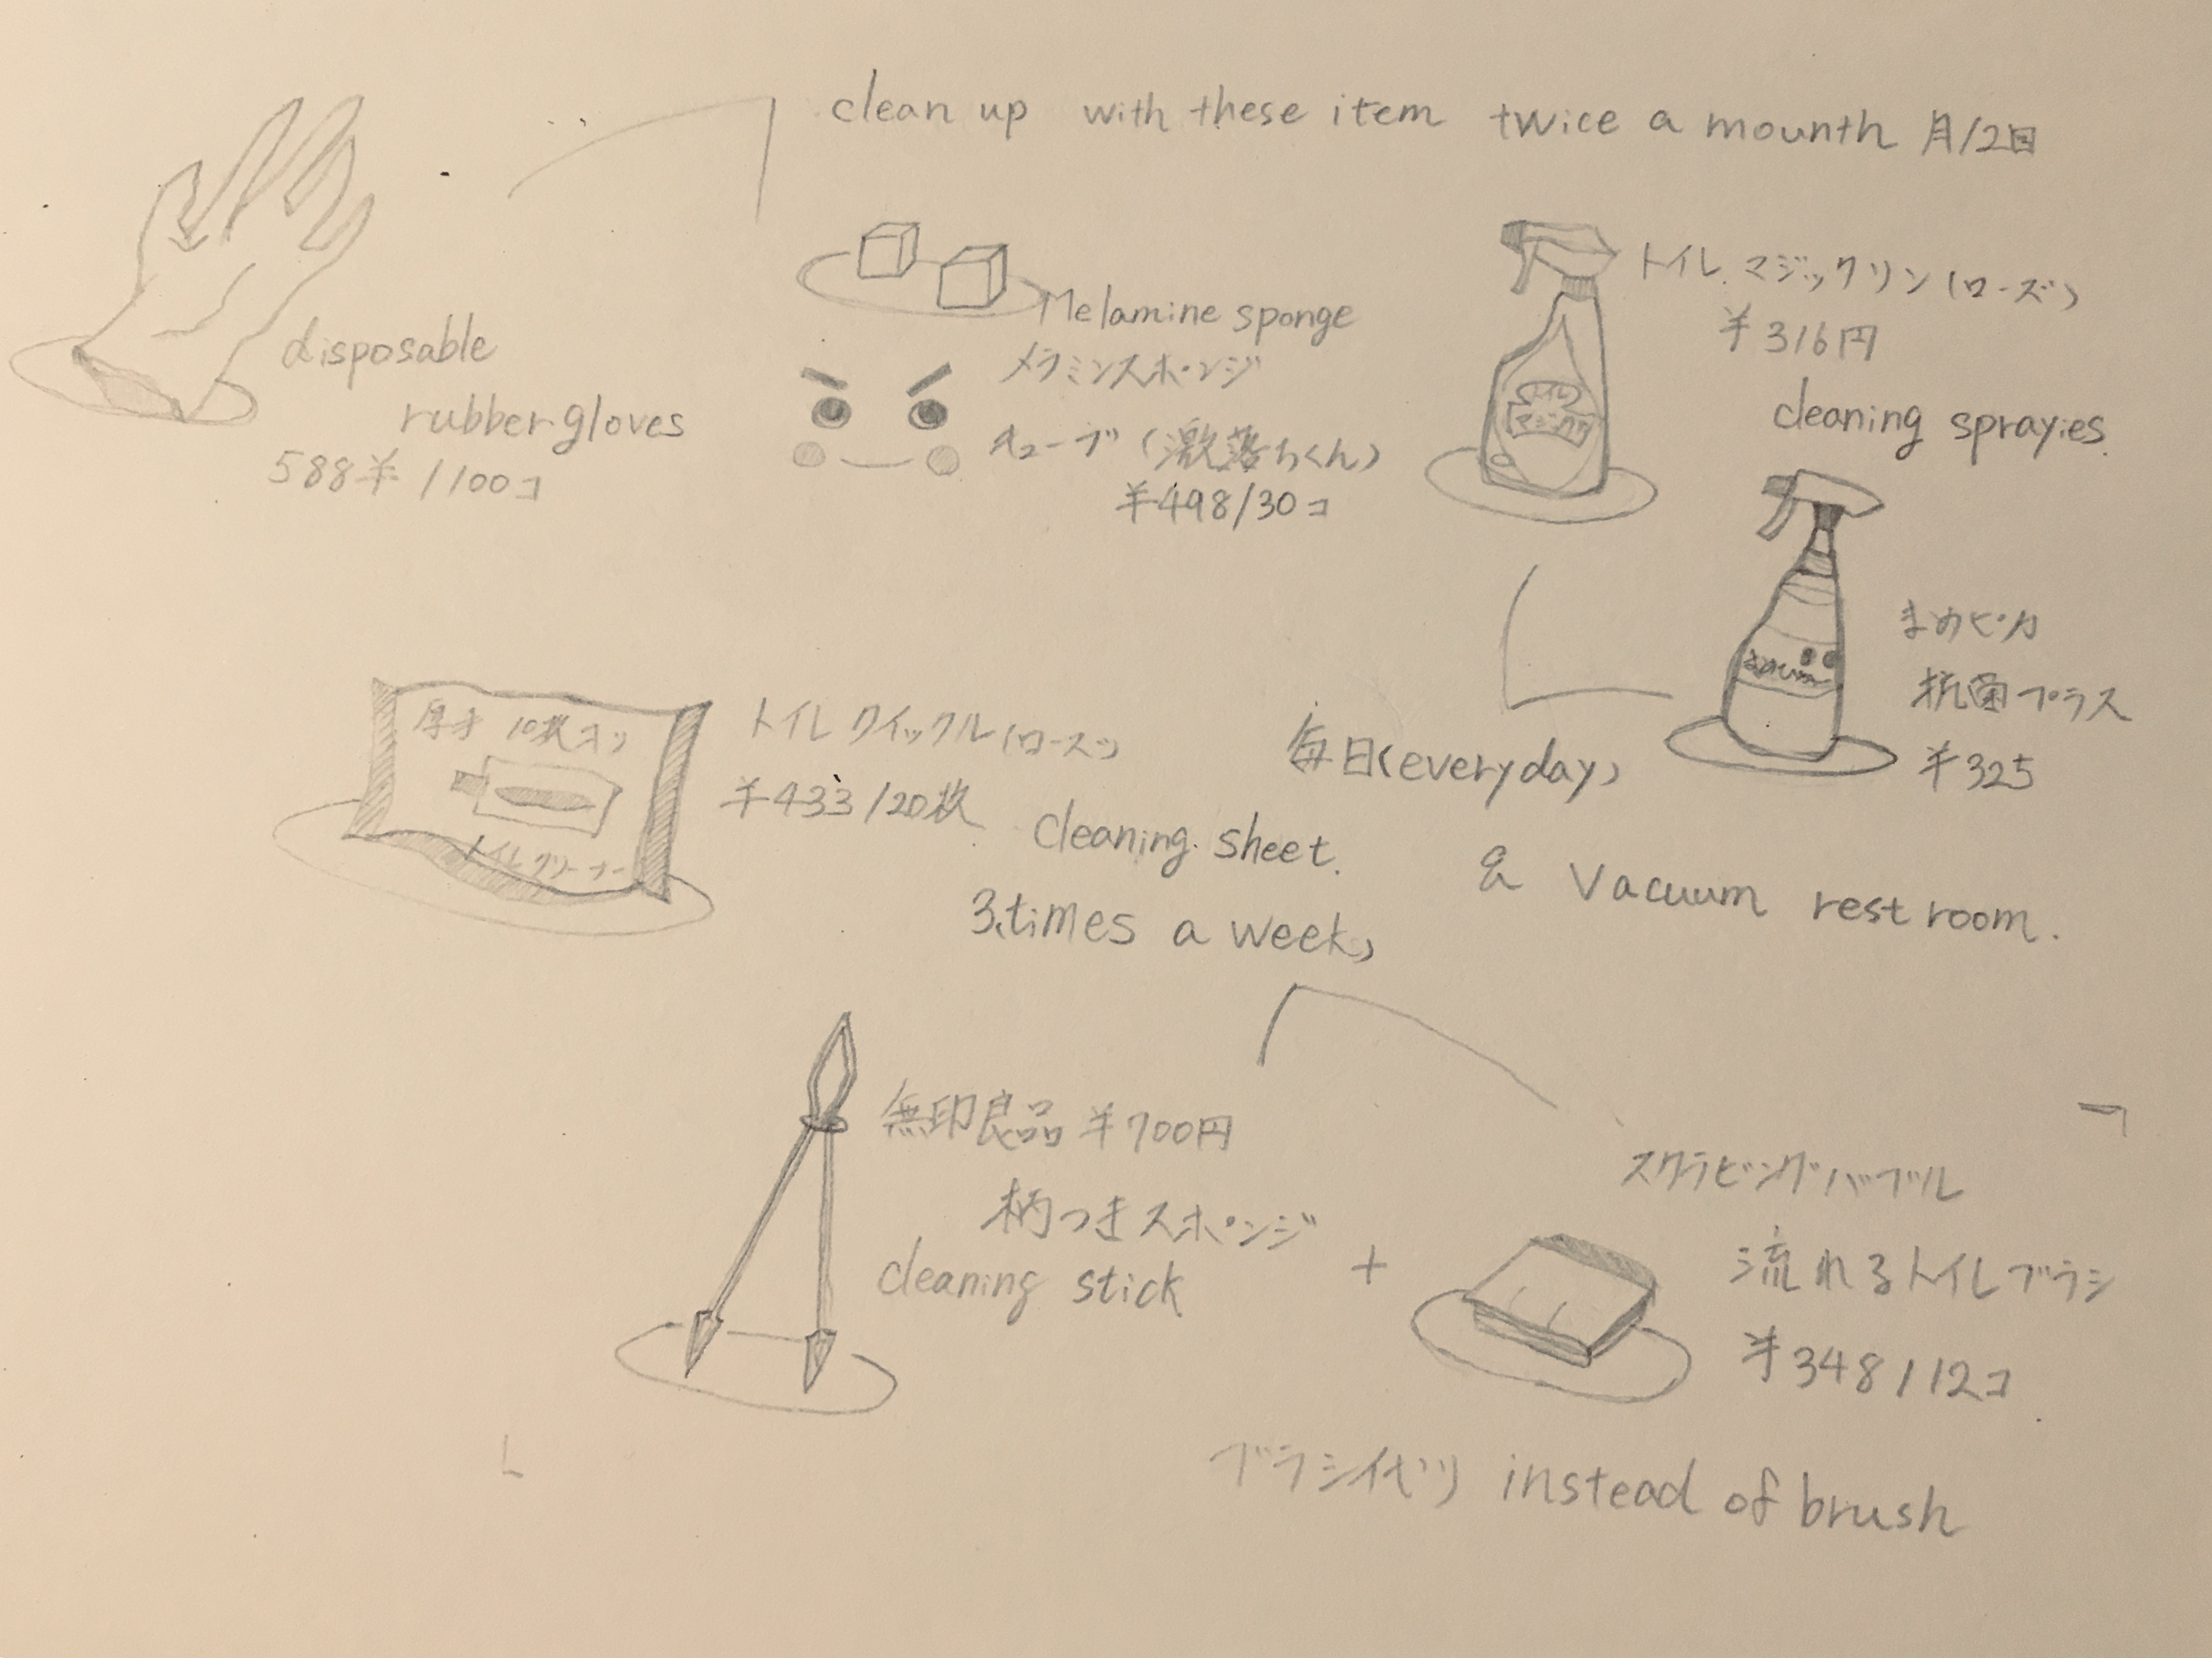 clean up with these item twice a mounth 月/2回
disposable
rubber gloves
588¥ /100コ
Melamine sponge
メラミンスポンジ
キューブ (激落ちくん)
¥498/30コ
トイレマジックリン(ローズ)
¥316円
cleaning sprayies.
トイレ
まめピカ
抗菌プラス
¥325
厚手 10枚入り
トイレクリーナー
トイレクイックル(ローズ)
¥433/20枚
cleaning sheet.
3.times a week,
毎日(everyday)
& Vacuum rest room.
無印良品 ¥700円
柄つきスポンジ
cleaning stick
+
スクラビングバブル
流れるトイレブラシ
¥348/12コ
ブラシ代り instead of brush